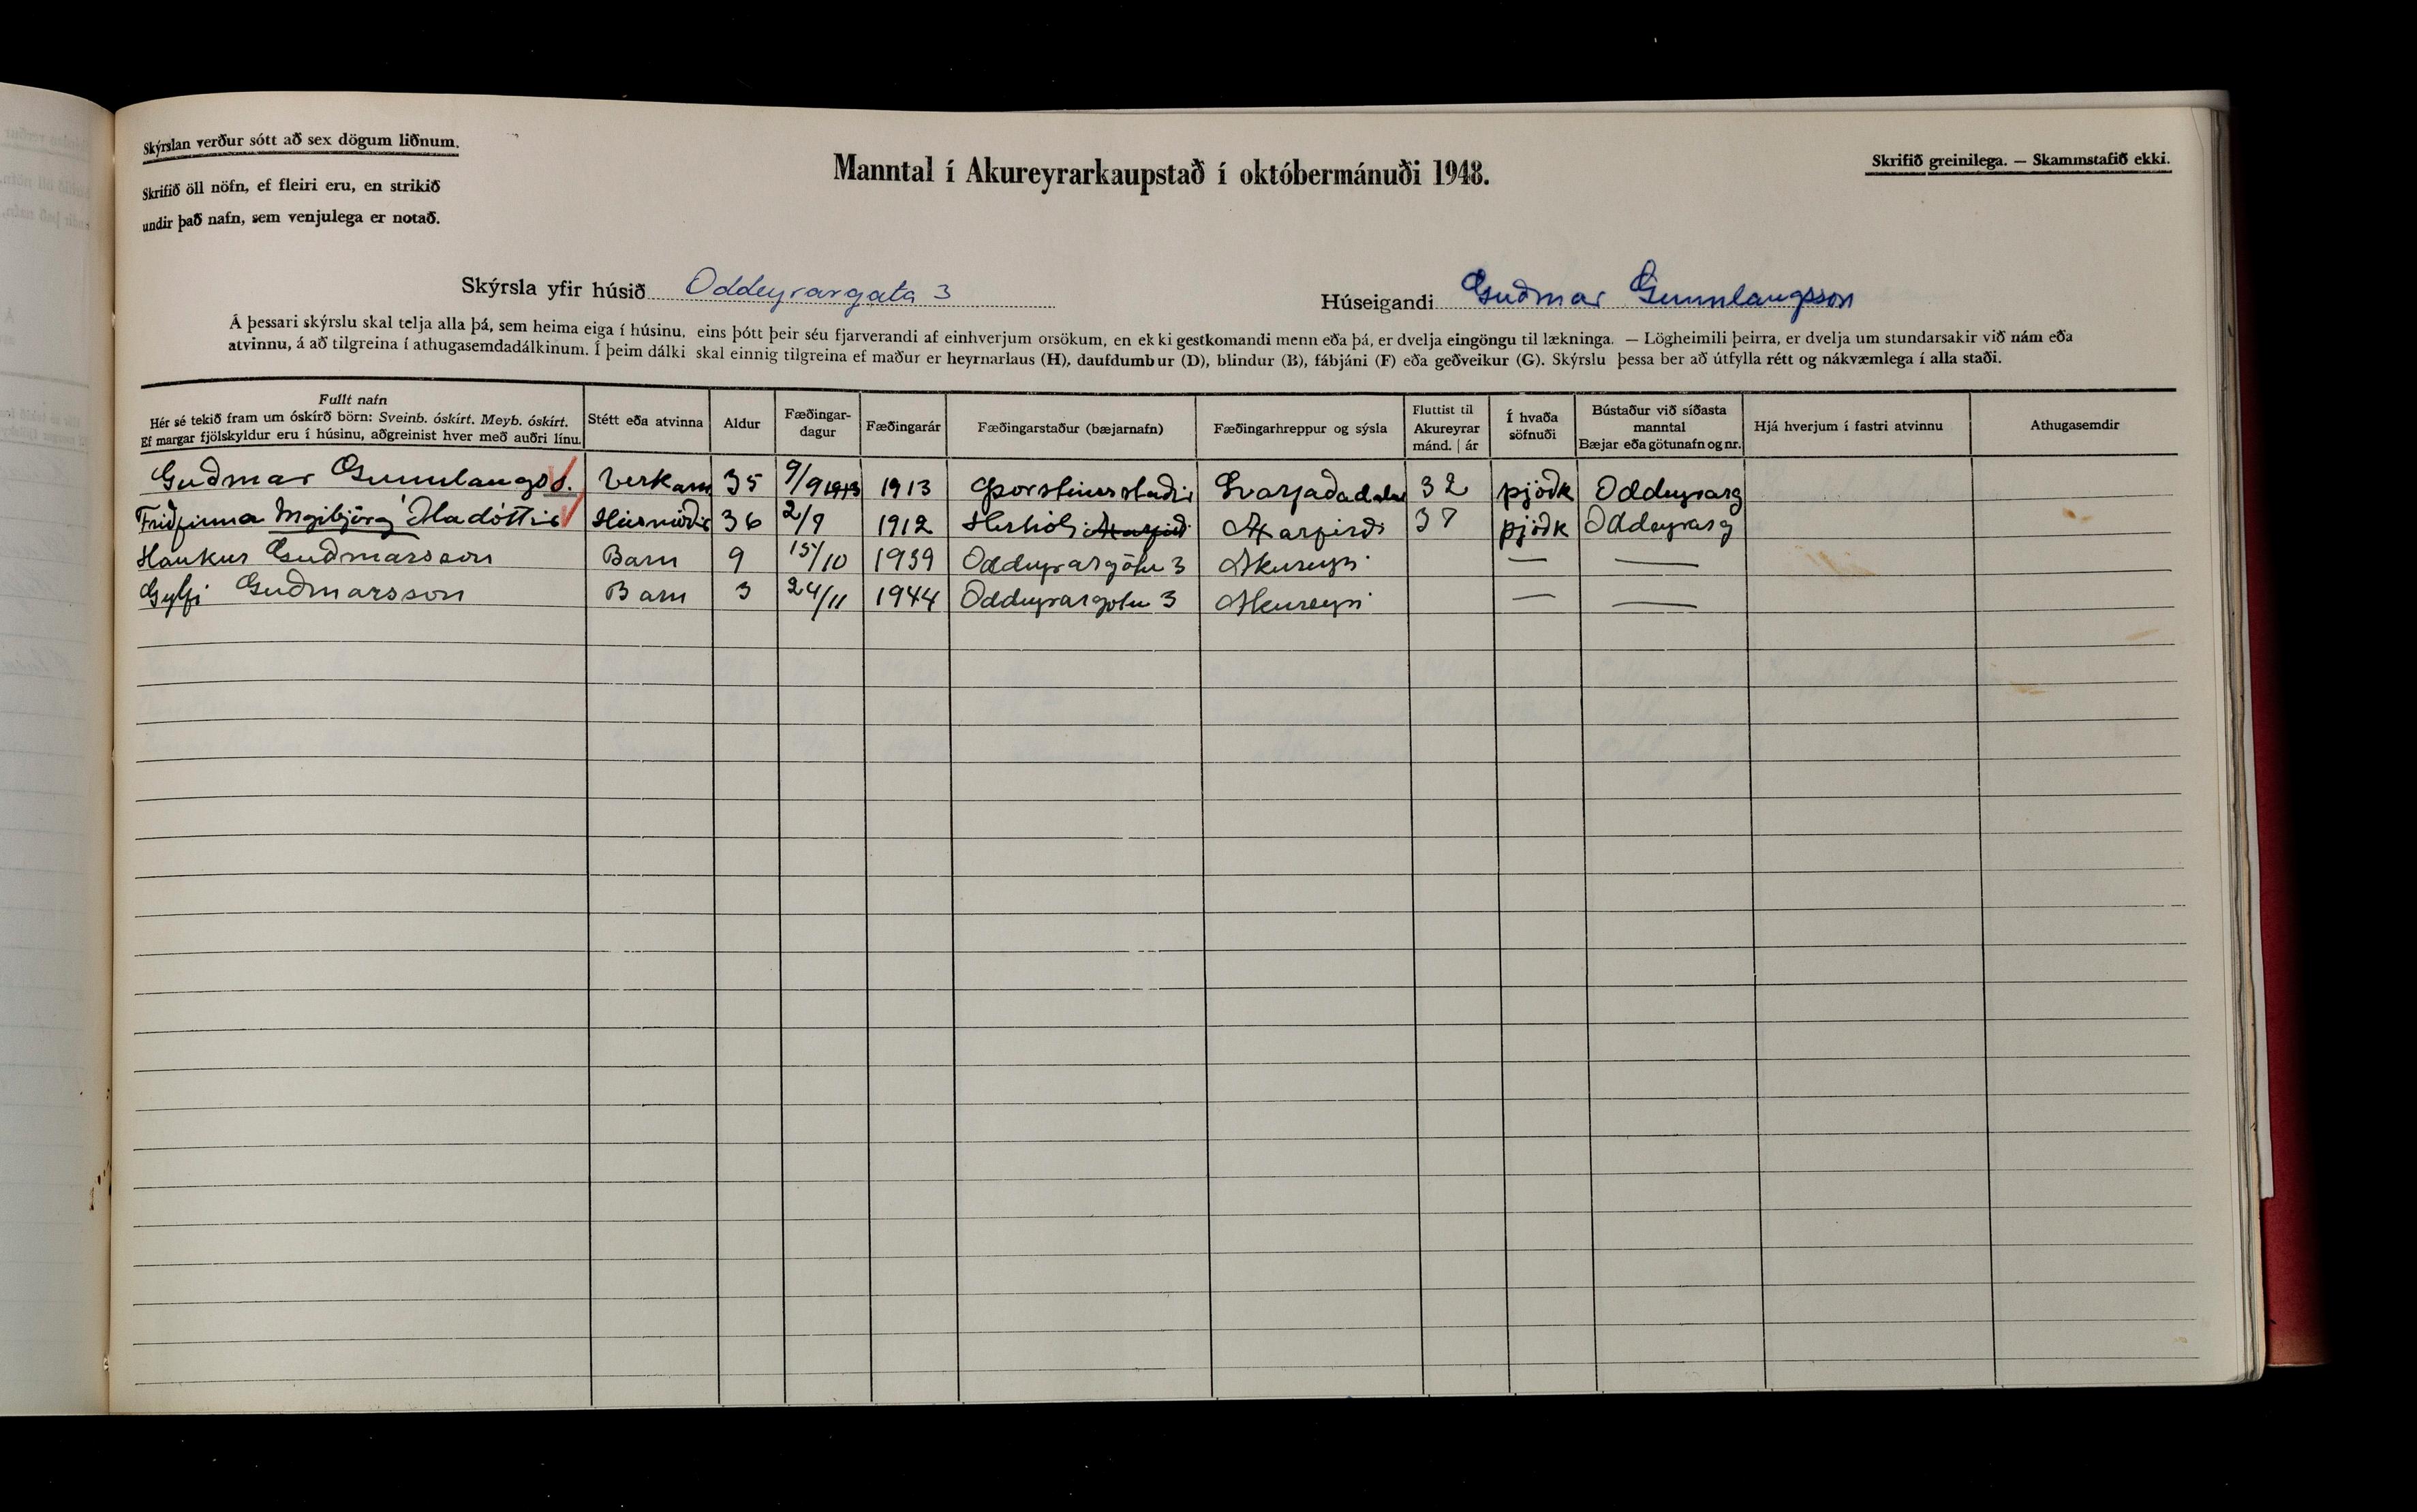 Skýrslan verður sótt að sex dögum liðnum.
Skrifið öll nöfn, ef fleiri eru, en strikið
undir það nafn, sem venjulega er notað.
Manntal í Akureyrarkaupstað í októbermánuði 1948.
Skrifið greinilega. — Skammstafið ekki.
Skýrsla yfir húsið Oddeyrargata 3
Húseigandi Guðmar Gunnlaugsson
Á þessari skýrslu skal telja alla þá, sem heima eiga í húsinu, eins þótt þeir séu fjarverandi af einhverjum orsökum, en ekki gestkomandi menn eða þá, er dvelja eingöngu til lækninga. — Lögheimili þeirra, er dvelja um stundarsakir við nám eða
atvinnu, á að tilgreina í athugasemdadálkinum. Í þeim dálki skal einnig tilgreina ef maður er heyrnarlaus (H), daufdumbur (D), blindur (B), fábjáni (F) eða geðveikur (G). Skýrslu þessa ber að útfylla rétt og nákvæmlega í alla staði.
Fullt nafn
Hér sé tekið fram um óskírð börn: Sveinb. óskírt. Meyb. óskírt.
Ef margar fjölskyldur eru í húsinu, aðgreinist hver með auðri línu.
Stétt eða atvinna
Aldur
Fæðingar-
dagur
Fæðingarár
Fæðingarstaður (bæjarnafn)
Fæðingarhreppur og sýsla
Fluttist til
Akureyrar
mánd. | ár
Í hvaða
söfnuði
Bústaður við síðasta
manntal
Bæjar eða götunafn og nr.
Hjá hverjum í fastri atvinnu
Athugasemdir
Guðmar Gunnlaugss. Verkam 35 9/9 1913 1913 Þorsteinsstaðir Svarfaðadalur 32 þjóðk Oddeyrarg
Friðfinna Ingibjörg Óladóttir Húsmóðir 36 2/9 1912 Axarfirði 37 þjóðk Oddeyrarg
Haukur Guðmarsson Barn 9 15/10 1939 Oddeyrargötu 3 Akureyri — —
Gylfi Guðmarsson Barn 3 24/11 1944 Oddeyrargotu 3 Akureyri — —